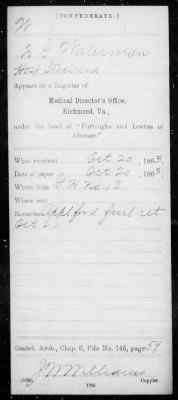 (CONFEDERATE.)
W
H. G. Waterman
Hosp. Steward
Appears on a Register of
Medical Director's Office,
Richmond, Va.,
under the head of "Furloughs and Leaves of
Absence."
When received Oct 20, 1863.
Date of paper Oct 20, 1863.
Where from G. H. No. 13
Where sent
Remarks: Appl for d furl ret
Oct 2
Confed. Arch., Chap. 6, File No. 145, page 59
J W Williams
Copyist.